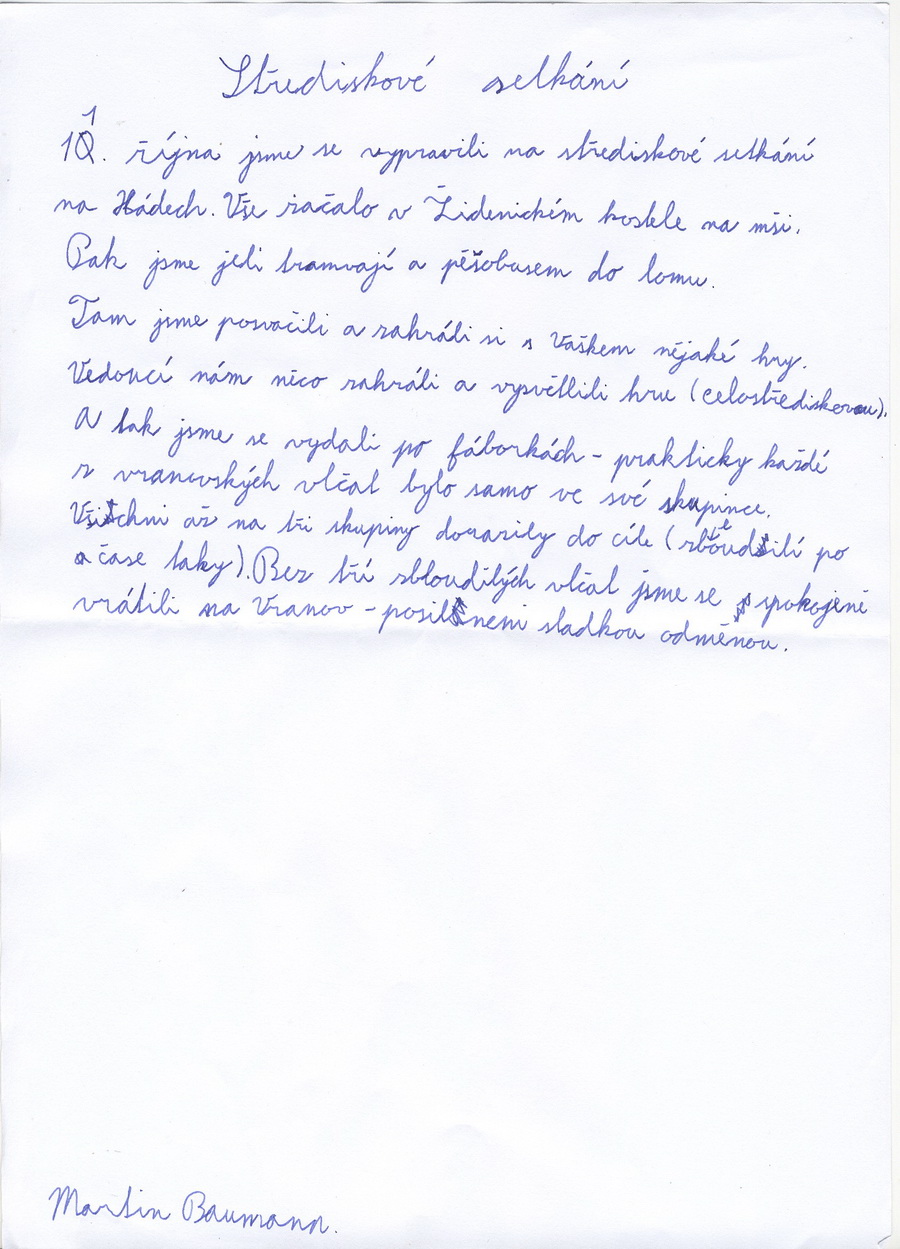 Střediskové setkání
11. října jsme se vypravili na střediskové setkání
na Hádech. Vše začalo v Židenickém kostele na mši.
Pak jsme jeli tramvají a pěšobusem do lomu.
Tam jsme posvačili a zahráli si s Vaškem nějaké hry.
Vedoucí nám něco zahráli a vysvětlili hru (celostřediskovou).
A tak jsme se vydali po fáborkách - prakticky každé
z vranovských vlčat bylo samo ve své skupince.
Všichni až na tři skupiny dorazily do cíle (zbloudilí po
čase taky). Bez tří zbloudilých vlčat jsme se spokojeně
vrátili na Vranov - posilněni sladkou odměnou.
Martin Baumann.